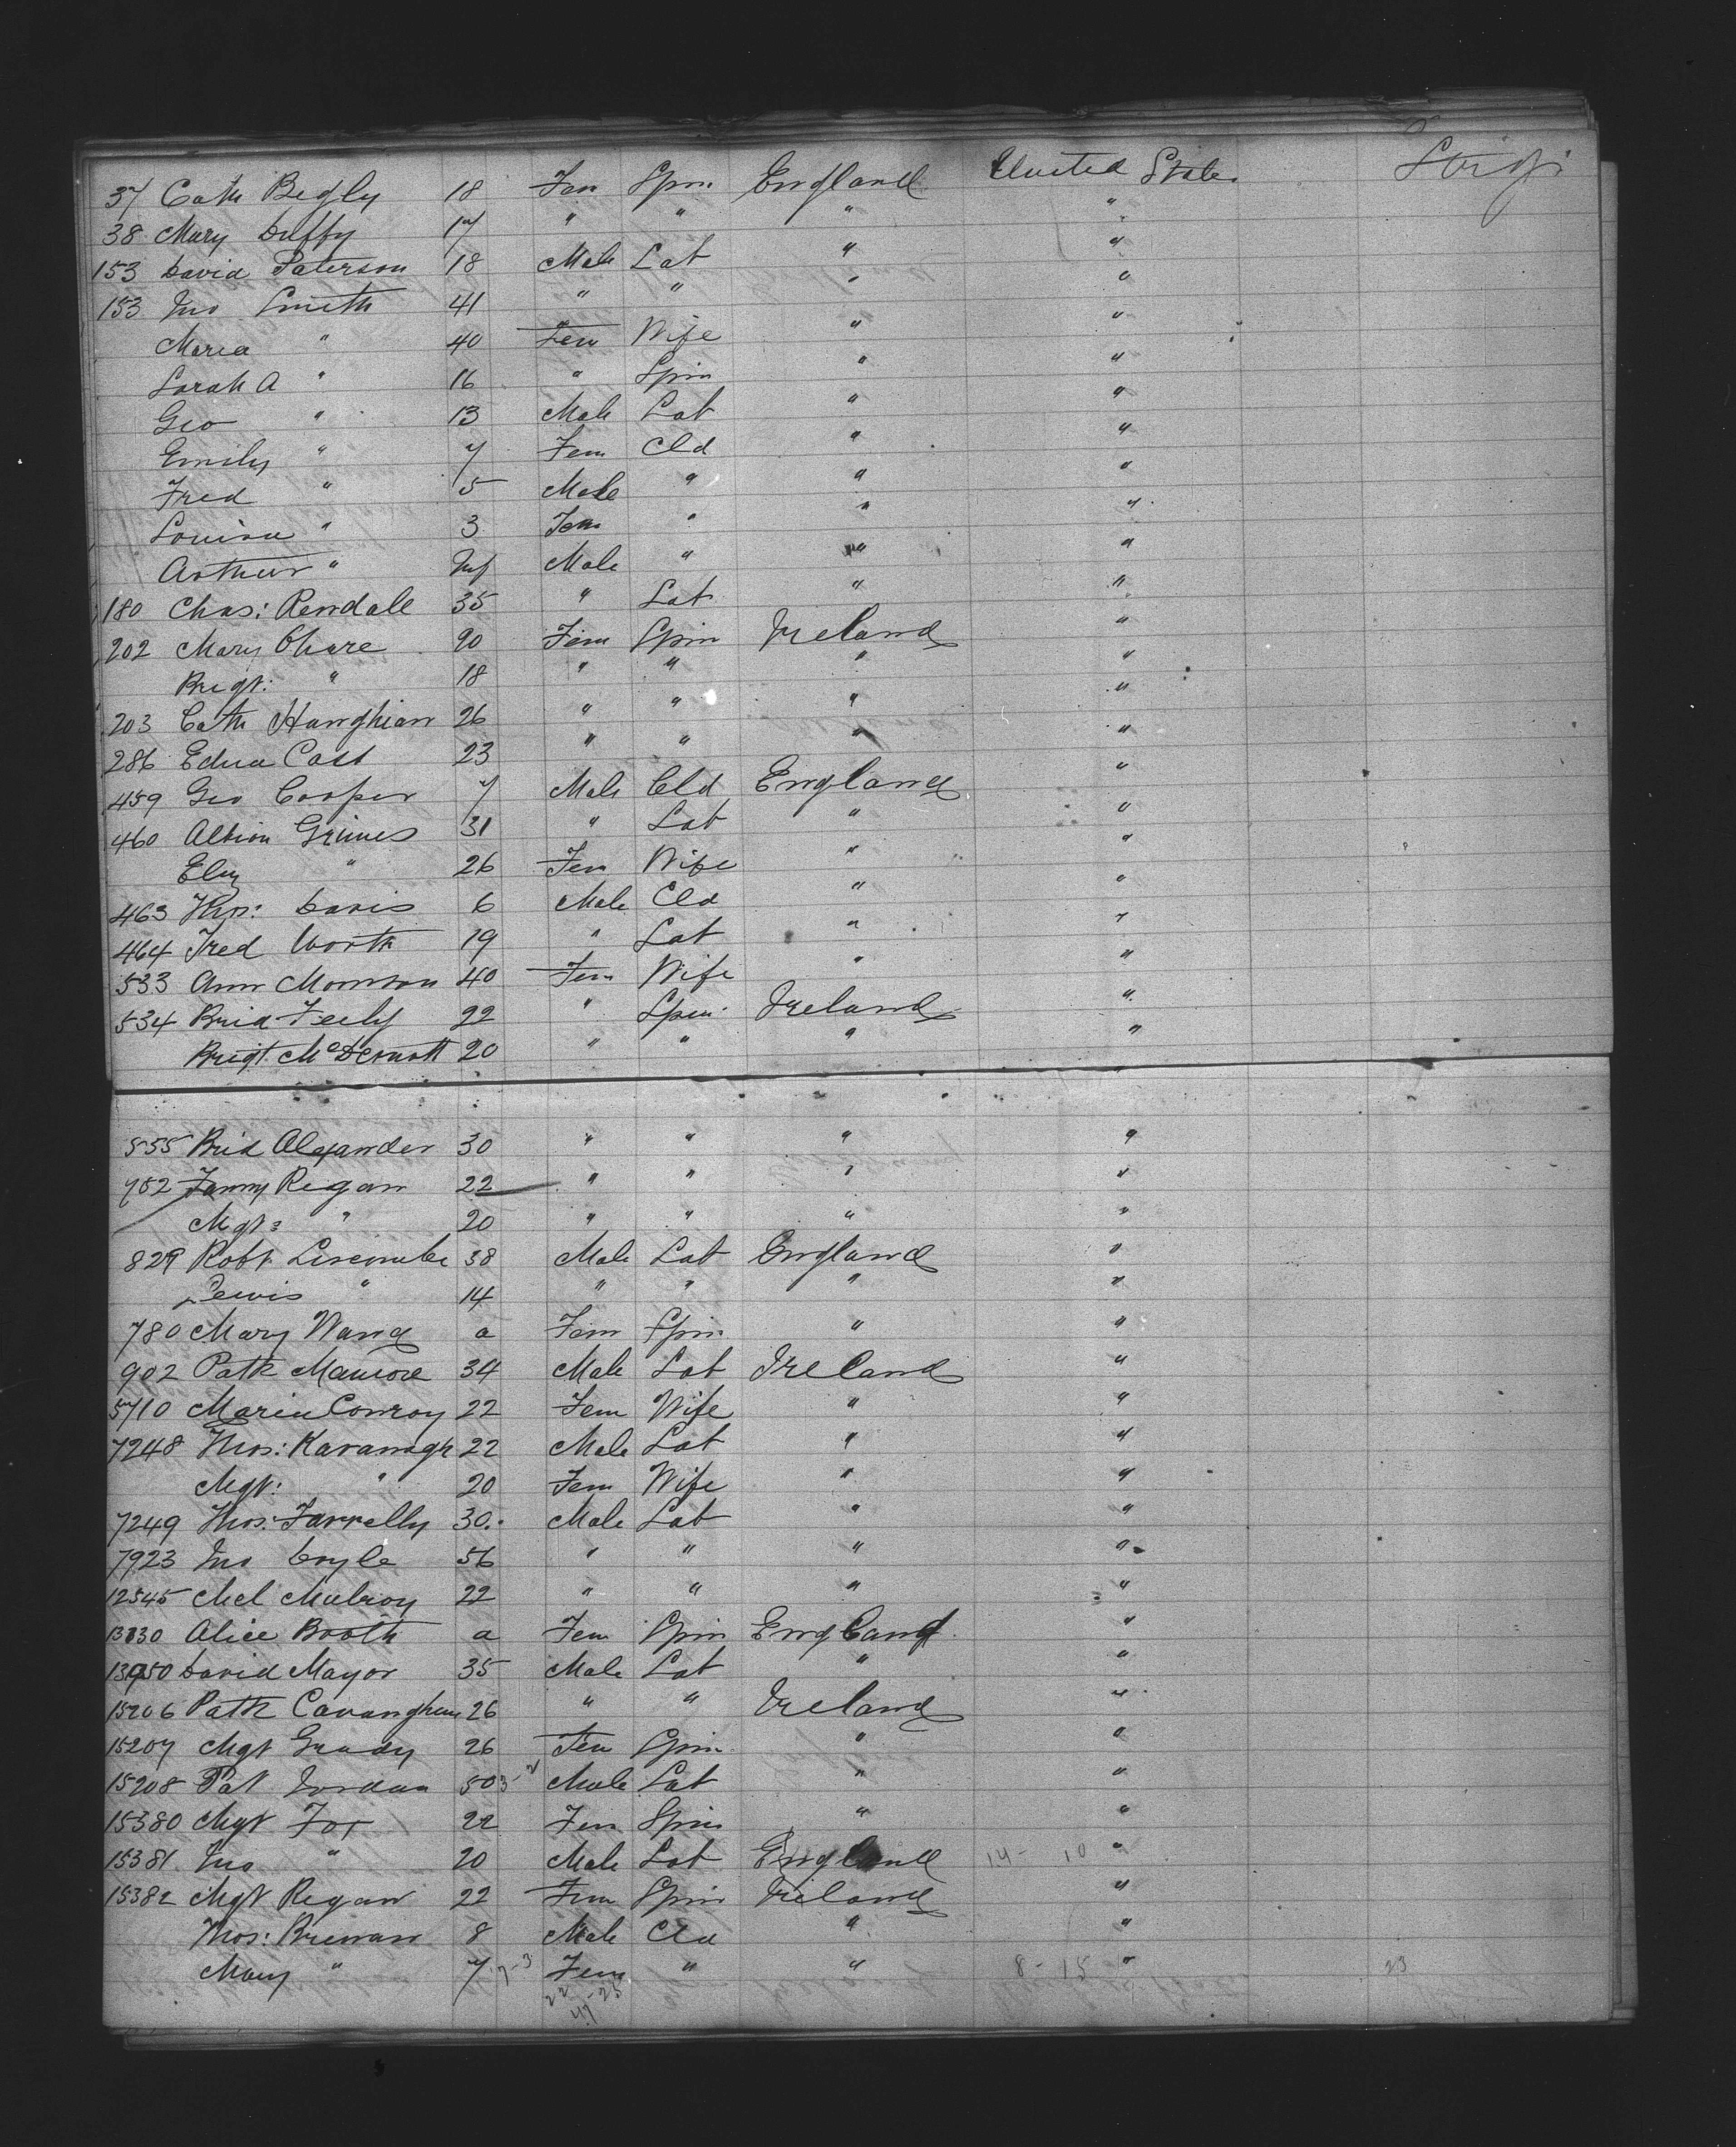 37 Cath Begly 18 Fem Spin England United States
38 Mary Duffy 17 " " " "
153 David Paterson 18 Male Lab " "
153 Jno Smith 41 " " " "
Maria " 40 Fem Wife " "
Sarah A " 16 " Spin " "
Geo " 13 Male Lab " "
Emily " 7 Fem Cld " "
Fred " 5 Male " " "
Louisa " 3 Fem " " "
Arthur " Inf Male " " "
180 Chas: Rendall 35 " Lab " "
202 Mary Ohare 90 Fem Spin Ireland "
Brigt: " 18 " " " "
203 Cath Hanghian 26 " " " "
286 Edna Cast 23 " " " "
459 Geo Cooper 7 Male Cld England "
460 Albion Grimes 31 " Lab " "
Eliz " 26 Fem Wife " "
463 Thos: Davis 6 Male Cld " "
464 Fred Worth 19 " Lab " "
533 Ann Morrison 40 Fem Wife " "
534 Brid Feely 22 " Spin Ireland "
Brigt McDermott 20 " " " "
555 Brid Alexander 30 " " " "
752 Fanny Regan 22 " " " "
Mgt: " 20 " " " "
829 Robt Liscombe 38 Male Lab England "
Lewis " 14 " " " "
780 Mary Ward a Fem Spin " "
902 Patk 34 Male Lab Ireland "
5710 Maria Conroy 22 Fem Wife " "
7248 Thos: Kavanagh 22 Male Lab " "
Mgt: " 20 Fem Wife " "
7249 Thos: Farrelly 30 Male Lab " "
7923 Jno Doyle 56 " " " "
12545 Mcl Mulroy 22 " " " "
Alice Booth a Fem Spin England "
David Mayor 35 Male Lab " "
15206 Patk 26 " " Ireland "
15207 Mgt Grady 26 Fem Spin " "
15208 Pat Jordan 50 Male Lab " "
15380 Mgt Fox 22 Fem Spin " "
15381 Jno " 20 Male Lab England 14- 10 "
15382 Mgt Regan 22 Fem Spin Ireland "
Thos: Brennan 8 Male Cld " "
Mary " 7 Fem " " 8-15 " 23